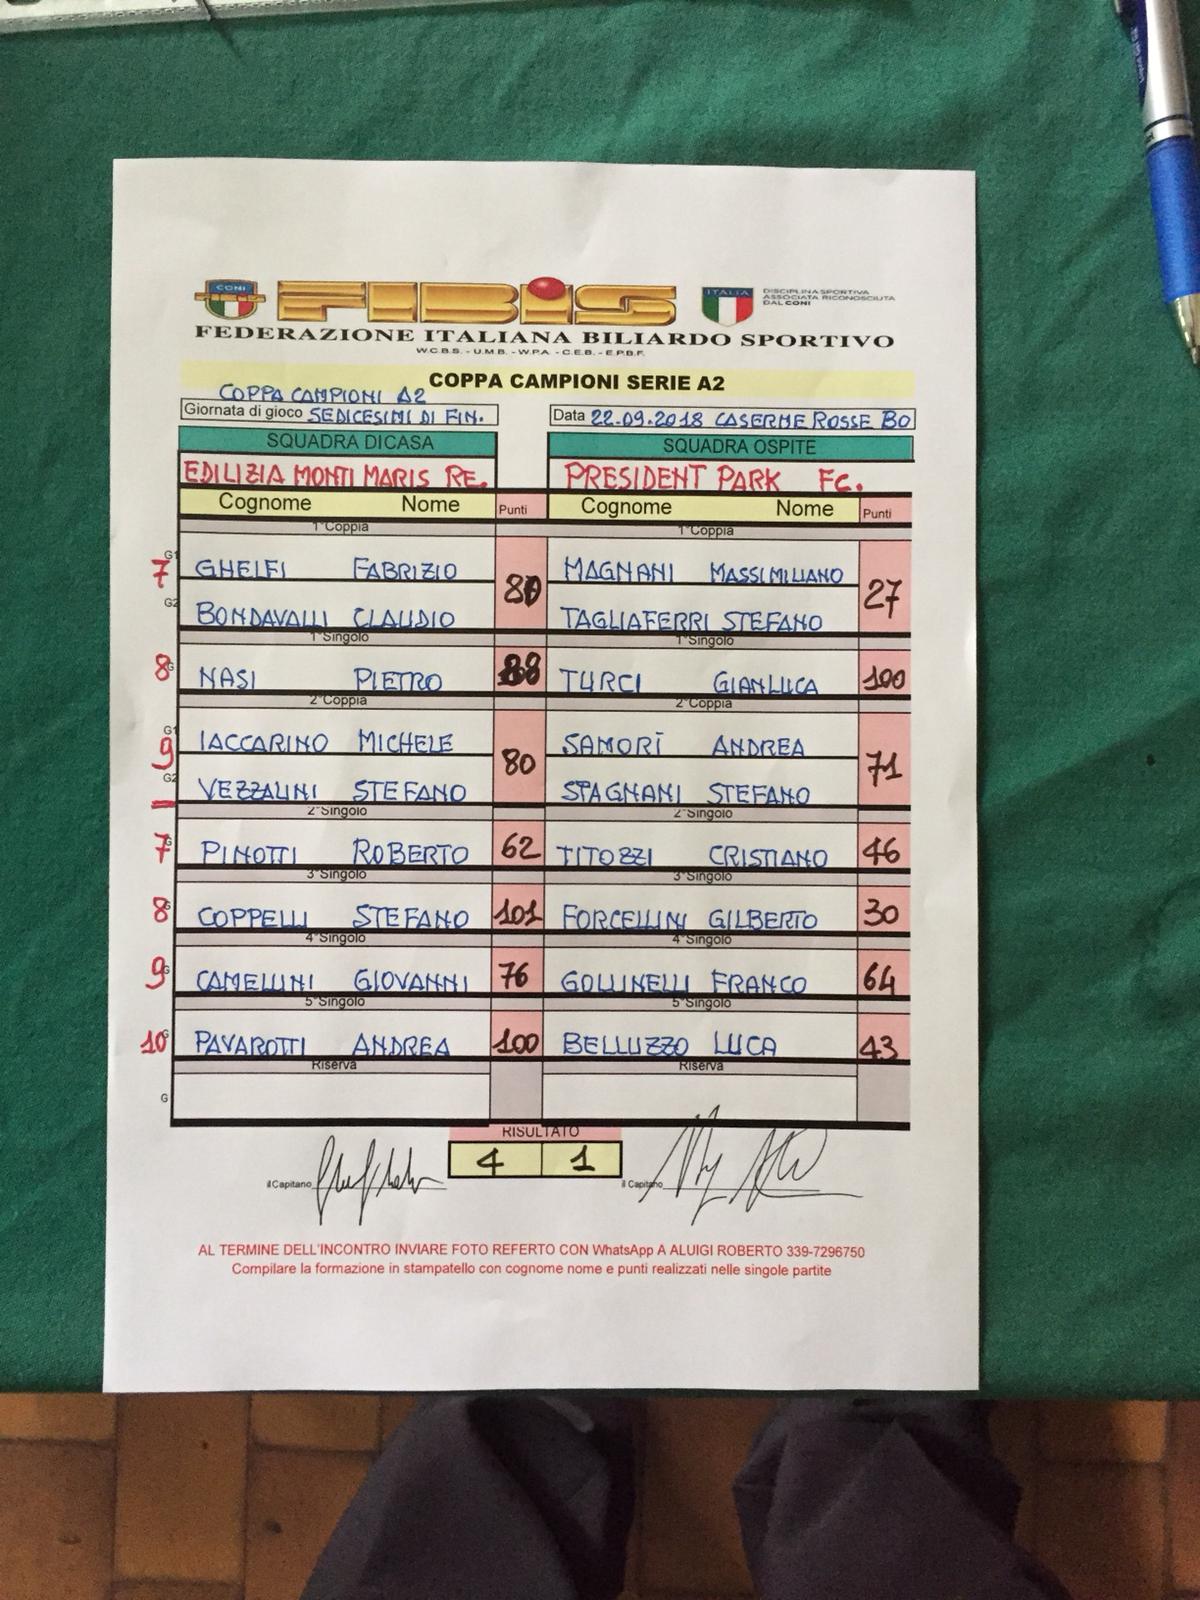 CONI FIBIS ITALIA DISCIPLINA SPORTIVA
ASSOCIATA RICONOSCIUTA
DAL CONI
FEDERAZIONE ITALIANA BILIARDO SPORTIVO
W.C.B.S. - U.M.B. - W.P.A. - C.E.B. - E.P.B.F.
COPPA CAMPIONI SERIE A2
COPPA CAMPIONI A2
Giornata di gioco SEDICESIMI DI FIN. Data 22.09.2018 CASERME ROSSE BO
SQUADRA DI CASA SQUADRA OSPITE
EDILIZIA MONTI MARIS RE. PRESIDENT PARK FC.
Cognome Nome Punti Cognome Nome Punti
1°Coppia 1°Coppia
7 G1 GHELFI FABRIZIO 80 MAGNANI MASSIMILIANO 27
G2 BONDAVALLI CLAUDIO TAGLIAFERRI STEFANO
1°Singolo 1°Singolo
8 G NASI PIETRO 88 TURCI GIANLUCA 100
2°Coppia 2°Coppia
9 G1 IACCARINO MICHELE 80 SAMORÌ ANDREA 71
G2 VEZZALINI STEFANO SPAGNANI STEFANO
2°Singolo 2°Singolo
7 G PINOTTI ROBERTO 62 TITOZZI CRISTIANO 46
3°Singolo 3°Singolo
8 G COPPELLI STEFANO 101 FORCELLINI GILBERTO 30
4°Singolo 4°Singolo
9 G CAMELLINI GIOVANNI 76 GOLLINELLI FRANCO 64
5°Singolo 5°Singolo
10 G PAVAROTTI ANDREA 100 BELLUZZO LUCA 43
Riserva Riserva
G
RISULTATO
4 1
il Capitano il Capitano
AL TERMINE DELL'INCONTRO INVIARE FOTO REFERTO CON WhatsApp A ALUIGI ROBERTO 339-7296750
Compilare la formazione in stampatello con cognome nome e punti realizzati nelle singole partite